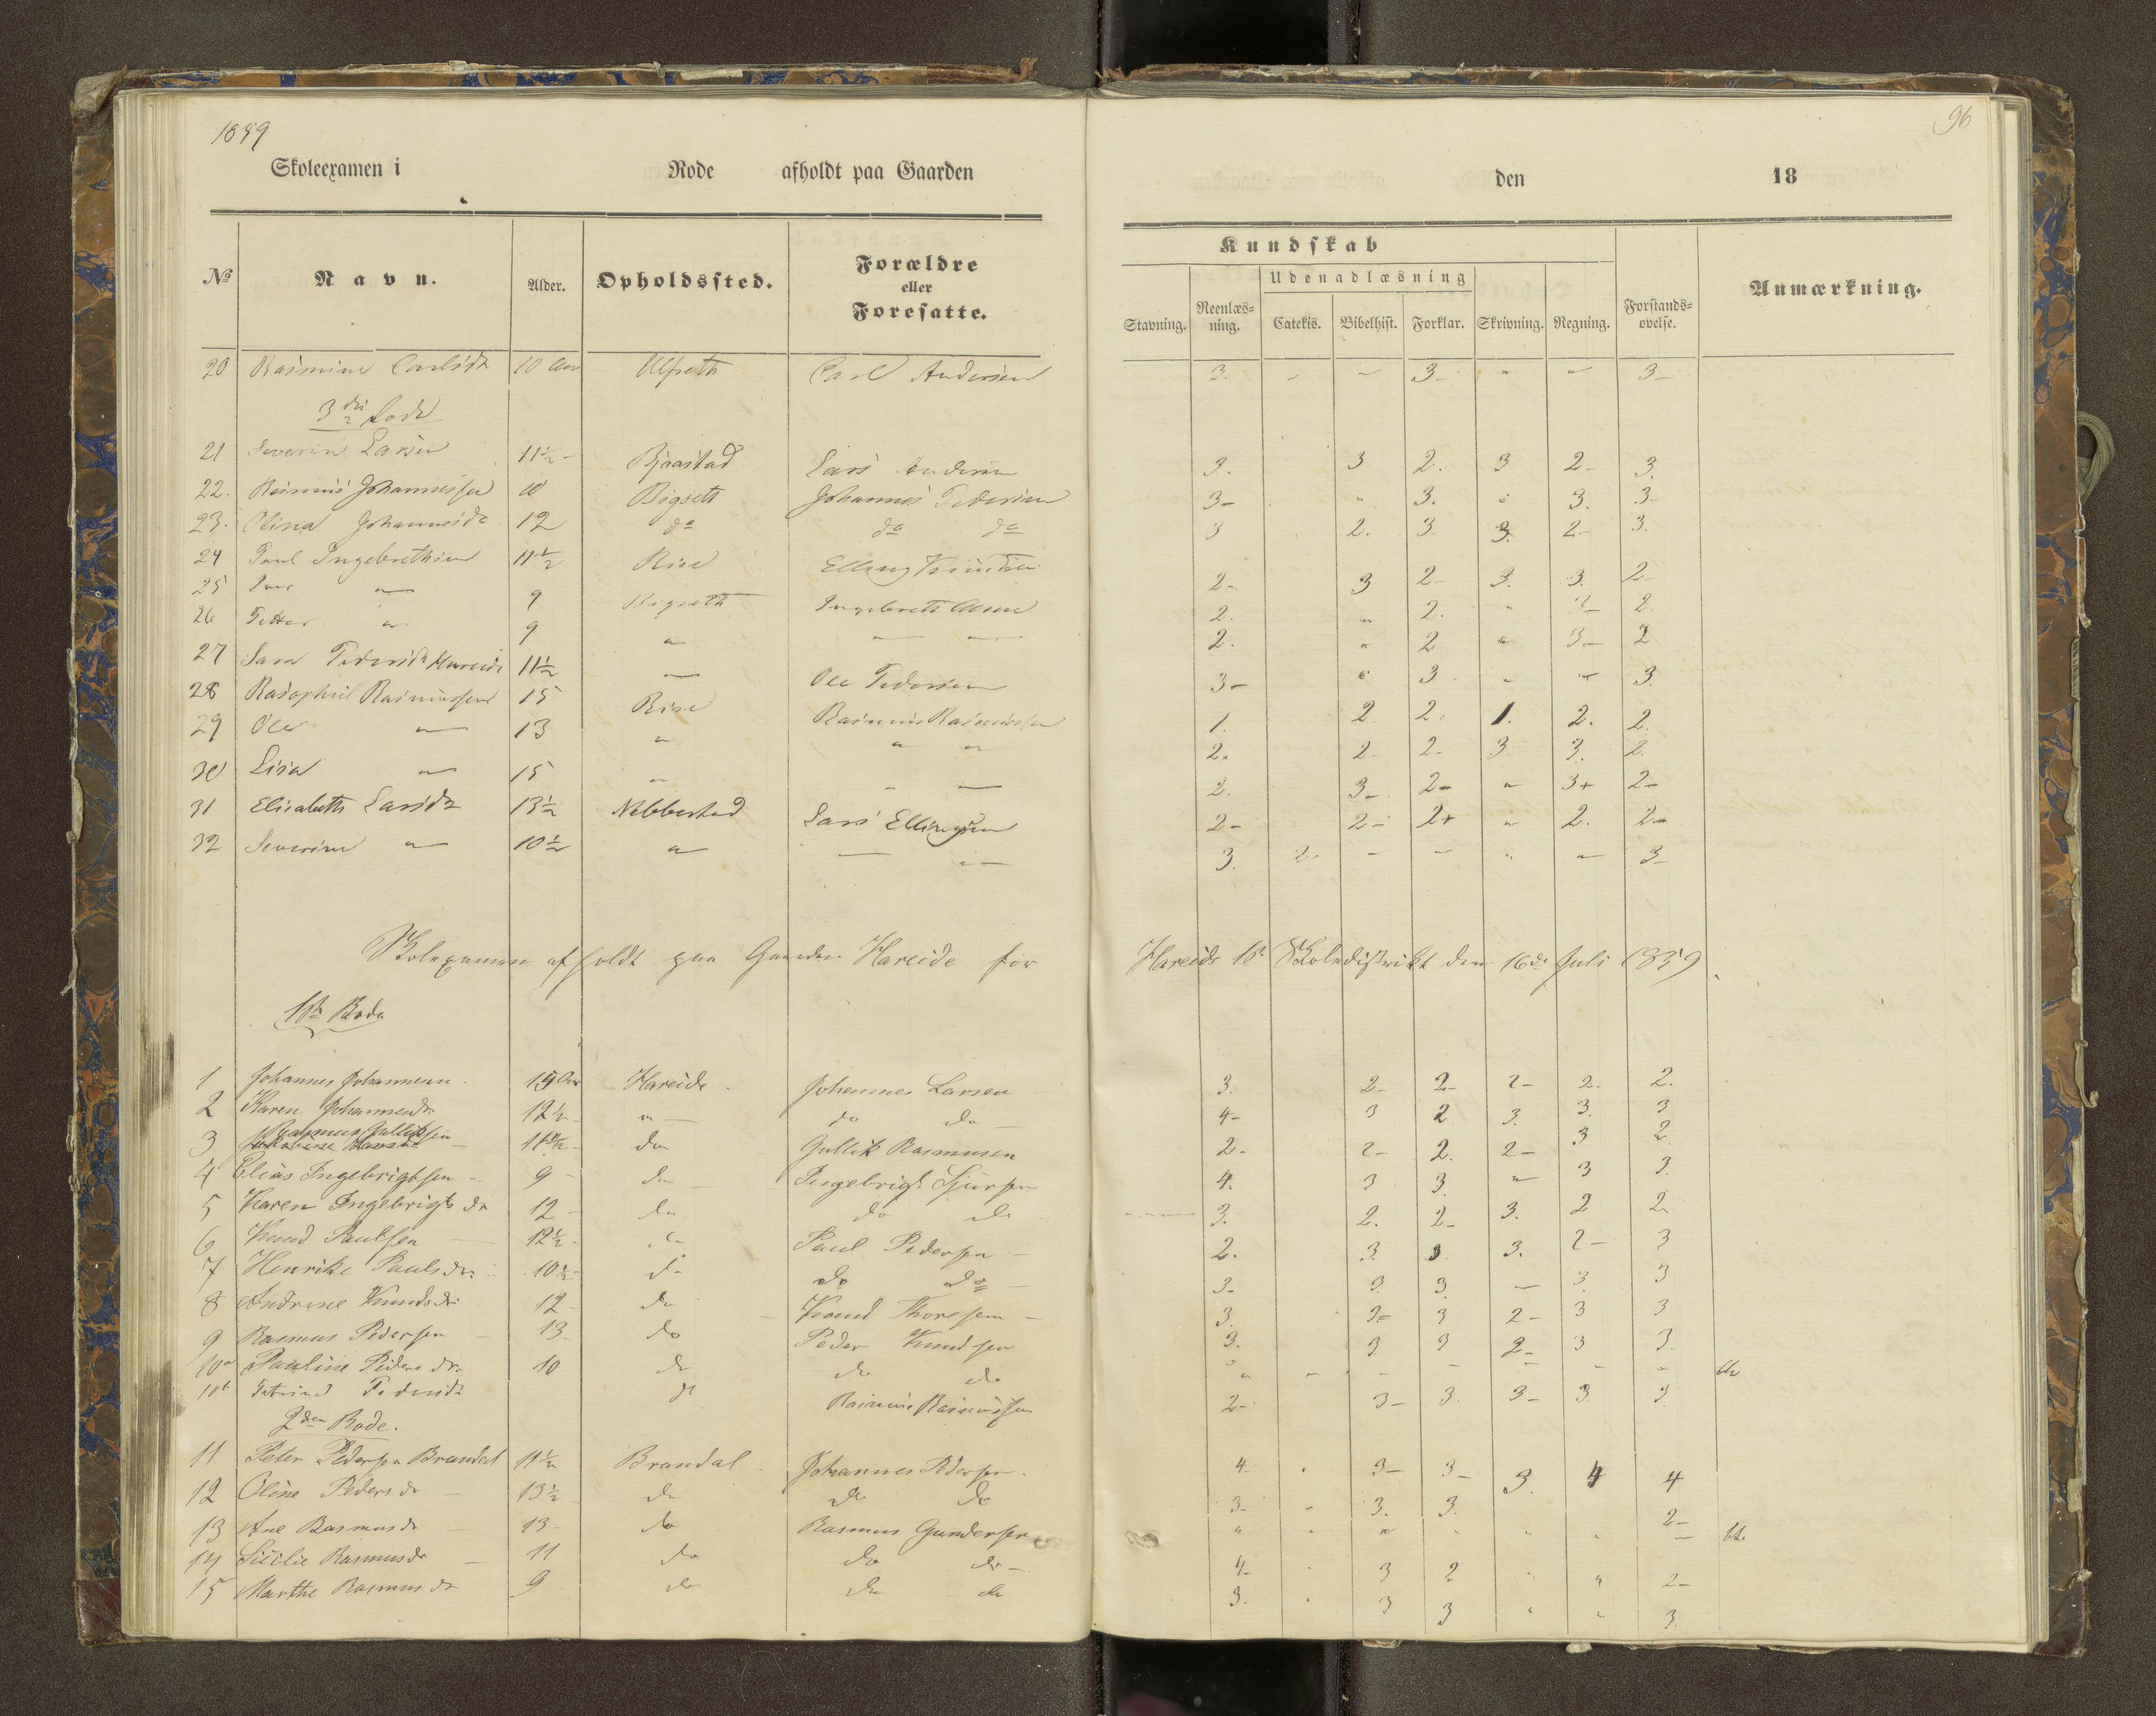 1859
96
Skoleexamen i Rode afholdt paa Gaarden den 18
No Navn. Alder. Opholdssted. Forældre eller Foresatte.
Kundskab
Udenadlæsning
Stavning. Reenlæsning. Catekis. Bibelhist. Forklar. Skrivning. Regning. Forstandsøvelse. Anmærkning.
20 Rasmine Carlsdr 10 Aar Ulfseth Carl Andersen 3. " " 3- " " 3-
3die Rode
21 Severin Larsen 11½ - Bjaastad Lars Andersen 3. 3 2. 3 2- 3.
22. Rasmus Johannessen 10 Bigseth Johannes Pedersen 3- " 3. " 3. 3-
23. Olina Johannesdr 12 do do do 3 2. 3. 3. 2- 3.
24 Paul Ingebrethsen 11½ Rise Elling 2- 3 2- 3. 3. 2-
25 Iver " 9 Bigseth Ingebreth 2. " 2. " 3- 2.
26 Petter " 9 " " " 2. " 2 " 3- 2
27 Sara Pedersdr Hareide 11½ " Ole Pedersen 3- " 3 " " 3.
28 Rasmus Rasmussen 15 Rise Rasmus Rasmussen 1. 2. 2. 1. 2. 2.
29 Ole " 13 " " " 2. 2- 2- 3 3. 2.
30 Lisa " 15 " " " 2. 3- 2- " 3+ 2-
31 Elisabeth Larsdr 13½ Nebbestad Lars Ellingsen 2- 2- 2+ " 2. 2-
32 Severine " 10½ " " " 3. 2. " " " " 3-
Skoleexamen afholdt paa Gaarden Hareide for Hareids 1ste Skoledistrikt den 16de Juli 1859
1ste Rode
1 Johannes Johannesen. 15 Aar Hareide. Johannes Larsen 3. 2- 2- 2- 2. 2.
2 Karen Johannesdr. 12½ " do do 4- 3 2 3. 3. 3
3 Rasmus Gulliksen 11½ do Gullik Rasmusen 2- 2- 2. 2- 3 2.
4 Elias Ingebrigtsen - 9 - do Ingebrigt Sjursen 4. 3 3. " 3 3.
5 Karen Ingebrigtsdr 12 - do do do 3. 2. 2- 3. 2 2.
6 Knud Paulsen 12½ - do Paul Pedersen - 2. 3. 3. 3. 2- 3
7 Henrikke Paulsdr. 10½ - do do do 3- 3. 3. - 3. 3
8 Andrine Knudsdr 12 - do Knud Thoresen - 3. 3- 3 2- 3 3
9 Rasmus Pedersen 13 do Peder Knudsen 3. 3 3 2- 3 3.
10a Pauline Pedersdr. 10 do do do " " - - - - -
10b Petrine Pedersdr do Rasmus Rasmussen 2- 3- 3. 3- 3. 3
2den Rode.
11 Peter Pedersen Brandal 11½ Brandal Johannes Pedersen. 4- " 3- 3- 3. 4 4
12 Oline Pedersdr - 13½ - do do do 3- " 3. 3. 2-
13 Ane Rasmusdr 13 - do Rasmus Gundersen " " " " " " -
14 Sicilie Rasmusdr - 11 do do do - 4- " 3 2 " " 2-
15 Marthe Rasmusdr 9 do do do 3. " 3 3 " " 3.